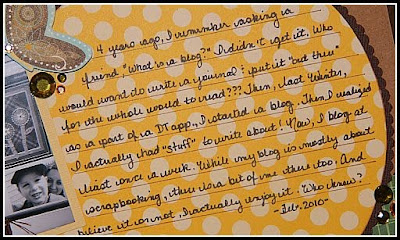 4 years ago, I remember asking a
friend, "What is a blog?" I didn't get it, Who
would want do write a journal & put it "out there"
for the whole world to read??? Then, last Winter,
as a part of a DT app, I started a blog. Then I realized
I actually had "stuff" to write about! Now, I blog at
least once a week. While my blog is mostly about
scrapbooking, there is a bit of me there too, And
believe it or not, I actually enjoy it. Who knew?
-Feb. 2010-